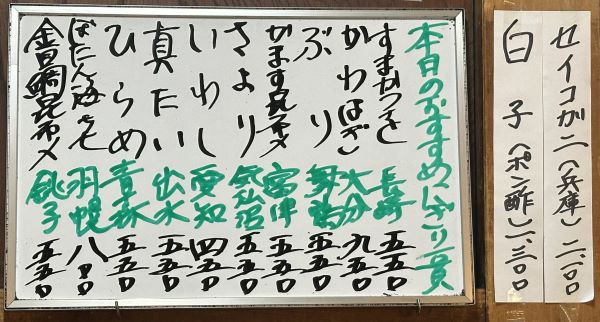 セイコガニ(兵庫)二、〇〇
白子(ポン酢)二、三〇〇
本日のおすすめにぎり一貫
すまがつを 長崎 五五〇
かわはぎ 大分 九五〇
ぶり 舞鶴 五五〇
かます昆布〆 富津 五五〇
さより 気仙沼 五五〇
いわし 愛知 四五〇
真たい 出水 五五〇
ひらめ 青森 五五〇
ぼたん海老 羽幌 八〇〇
金目鯛昆布〆 銚子 五五〇